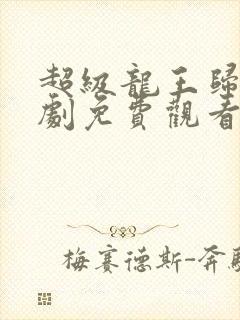 超級龍王歸
劇免費觀看
梅賽德斯-奔馳